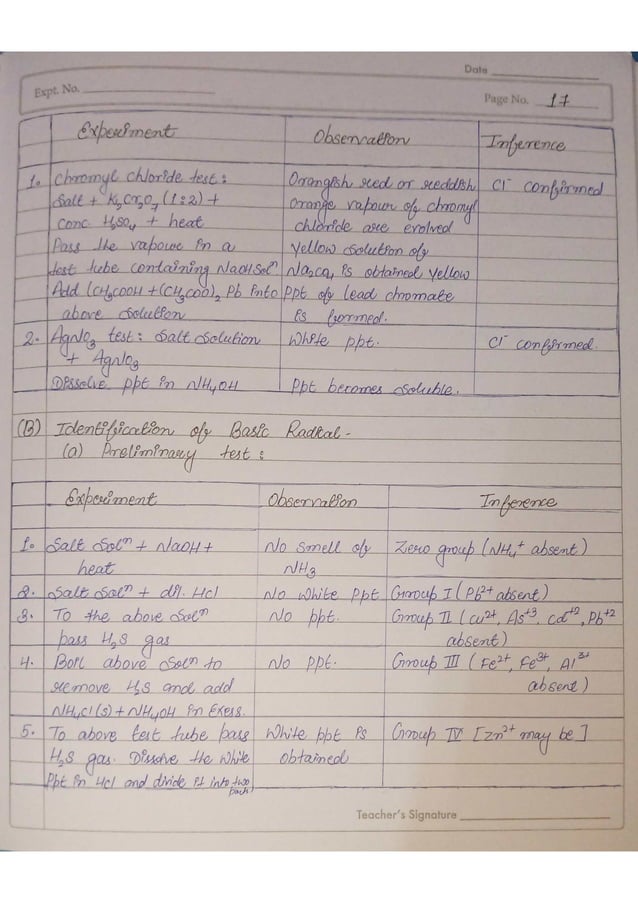 Date
Expt. No.
Page No. 17
Experiment Observation Inference
1. Chromyl chloride test: Orangish red or reddish Cl⁻ confirmed
Salt + K₂Cr₂O₇ (1:2) + orange vapour of chromyl
Conc. H₂SO₄ + heat chloride are evolved
Pass the vapour in a Yellow solution of
test tube containing NaOH Solⁿ Na₂CrO₄ is obtained yellow
Add (CH₃COOH + (CH₃COO)₂ Pb into ppt of lead chromate
above solution is formed.
2. AgNO₃ test: Salt solution White ppt. Cl⁻ confirmed.
+ AgNO₃
Dissolve ppt in NH₄OH Ppt becomes soluble.
(B) Identification of Basic Radical -
(a) Preliminary test:
Experiment Observation Inference
1. Salt Solⁿ + NaOH + No smell of Zero group (NH₄⁺ absent)
heat NH₃
2. Salt Solⁿ + dil. HCl No white ppt Group I (Pb²⁺ absent)
3. To the above Solⁿ No ppt. Group II (Cu²⁺, As⁺³, Cd⁺², Pb⁺²
pass H₂S gas absent)
4. Boil above Solⁿ to No ppt. Group III (Fe²⁺, Fe³⁺, Al³⁺
remove H₂S and add absent)
NH₄Cl(s) + NH₄OH in Exess.
5. To above test tube pass White ppt is Group IV [Zn²⁺ may be]
H₂S gas. Dissolve the white obtained
Ppt in HCl and divide it into two
part
Teacher's Signature